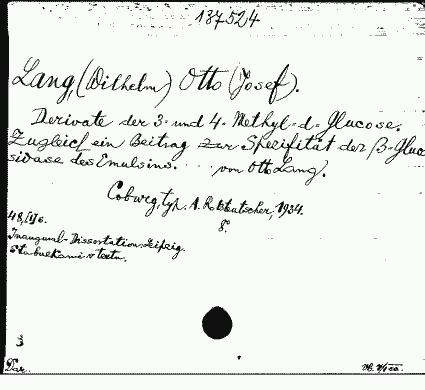 137524
Lang, (Wilhelm) Otto (Josef).
Derivate der 3- und 4-Methyl-d-Glucose.
Zugleich ein Beitrag zur Spezifität der β-Gluc
sidase des Emulsins. von Otto Lang.
Coburg, typ. A. Rossteutscher, 1934.
8°.
48, [I] s.
Inaugural-Dissertation. Leipzig.
S tabulkami v textu.
3